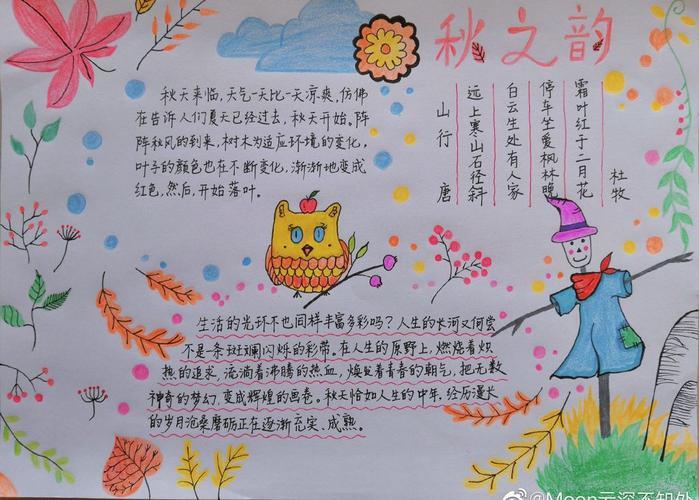 秋之韵
秋天来临,天气一天比一天凉爽,仿佛
在告诉人们夏天已经过去,秋天开始。阵
阵秋风的到来,树木为适应环境的变化,
叶子的颜色也在不断变化,渐渐地变成
红色,然后,开始落叶。
山行 唐
远上寒山石径斜
白云生处有人家
停车坐爱枫林晚
霜叶红于二月花
杜牧
生活的光环不也同样丰富多彩吗?人生的长河又何尝
不是一条斑斓闪烁的彩带。在人生的原野上,燃烧着炽
热的追求,流淌着沸腾的热血,焕发着青春的朝气,把无数
神奇的梦幻,变成辉煌的画卷。秋天恰如人生的中年,经历漫长
的岁月沧桑磨砺正在逐渐充实、成熟。
@Moon云深不知处